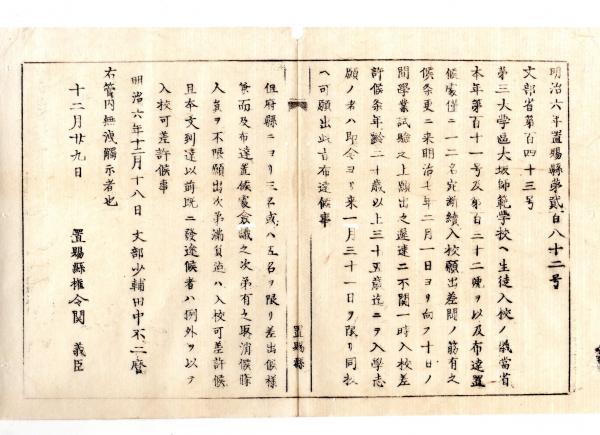 明治六年置賜縣第貳百八十二号
文部省第百四十三号
第三大学區大坂師範学校ヘ生徒入校ノ儀當省
本年第百十一号及第百三十二號ヲ以及布達置
候處僅ニ一二名宛断續入校願出差閊ノ筋有之
候条更ニ来明治七年二月一日ヨリ向フ十日ノ
間学業試驗之上願出之遅速ニ不関一時入校差
許候条年齢二十歳以上三十五歳迄ニテ入学志
願ノ者ハ即今ヨリ来一月三十一日ヲ限リ同校
ヘ可願出此旨布達候事
置賜縣
但府縣ニヨリ三名或ハ五名ヲ限リ差出候様
兼而及布達置候處僉議之次第有之取消候條
人員ヲ不限願出次第満員迠ハ入校可差許候
且本文到達以前既ニ發途候者ハ例外ヲ以テ
入校可差許候事
明治六年十二月十八日 文部少輔田中不二麿
右管内無洩觸示者也
十二月廿九日
置賜縣権令関 義臣